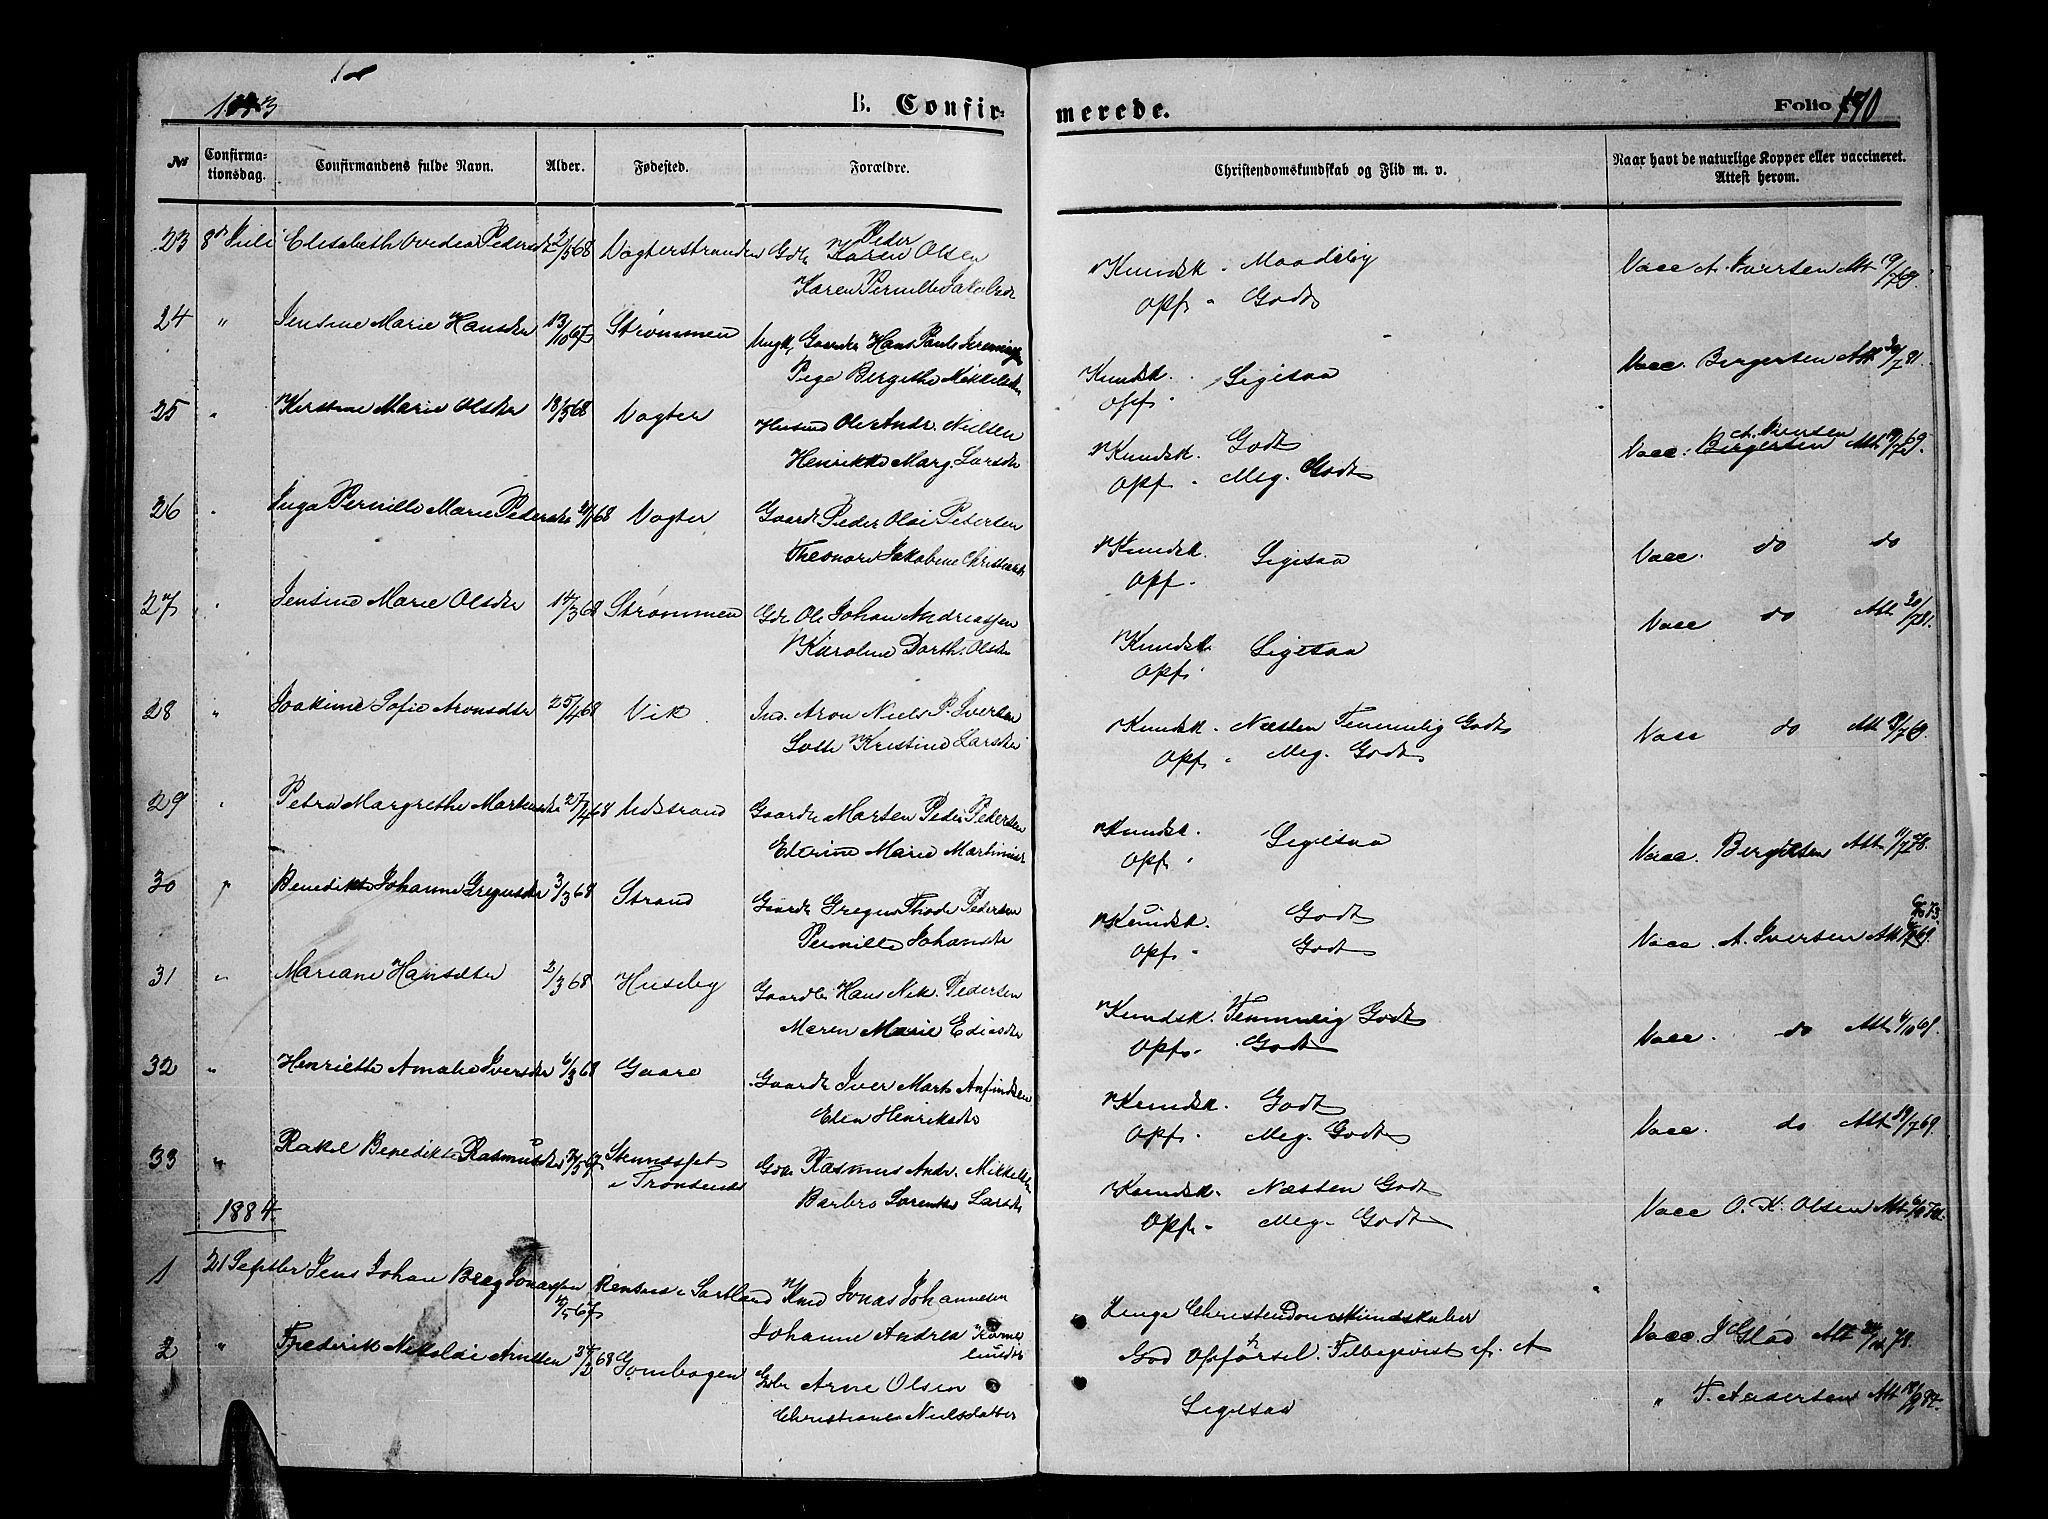 1883
B. Confir-
merede.
Folio 190
No
Confirma-
tionsdag.
Confirmandens fulde Navn.
Alder.
Fødested.
Forældre.
Christendomskundskab og Flid m. v.
Naar havt de naturlige Kopper eller vaccineret.
Attest herom.
23 8de Juli Elisabeth Ovedia Pedersdtr 2/5 68 Vogterstranden Gdbr Peder Olsen
Karen Pernille Jakobsdr
Kundsk. Maadelig
Opf. Godt
Vacc A. Iversen Att 19/7 69.
24 " Jensine Marie Hansdtr 13/10 67 Strømmen Ungk, Gaardbr Hans Paul
Bergithe Mikkelsdtr
Kundsk. Ligesaa
Opf.
Vacc. Bergersen Att 30/7 81.
25 " Kerstine Marie Olsdtr 18/5 68 Vogter Husmd Ole Andr. Nielsen
Henrikke Marg. Larsdr
Kundsk. Godt
Opf. Meg. Godt
A. Iversen
Vacc. Bergersen Att 19/7 69.
26 " Inga Pernille Marie Pedersdtr 68 Vogter Gaardb Peder Olai Petersen
Theonore Jakobine Christensdr
Kundsk. Ligesaa
Opf.
Vacc. do do
27 " Jensine Marie Olsdtr 14/3 68 Strømmen Gdbr Ole Johan Andreassen
Karoline Dorth. Olsdr
Kundsk. Ligesaa
Opf.
Vacc do Att 30/7 81.
28 " Joakime Sofie Aronsdtr 25/4 68 Vik Ind. Aron Niels P. Iversen
Lotte Kristine Larsdr
Kundsk. Næsten Temmelig Godt
Opf. Meg. Godt
Vacc do Att 19/7 69.
29 " Petra Margrethe Martensdtr 27/4 68 Udstrand Gaardbr Marten Peder Pedersen
Elenine Marie Martinusdr
Kundsk. Ligesaa
Opf.
Vacc. Bergersen Att 11/7 78.
30 " Benedikte Johanne Gregusdtr 3/3 68 Strand Gaardbr Gregus Thode Pedersen
Pernille Johansdtr
Kundsk. Godt
Opf. Godt
Vacc A. Iversen Att
31 " Mariane Hansdtr 2/3 68 Huseby Gaardbr Hans Nik. Pedersen
Maren Marie Ediasdtr
Kundsk. Temmelig Godt
Opf. Godt
Vacc. do Att 4/10 69.
32 " Henriette Amalie Iversdtr 6/3 68 Gaare Gaardbr Iver Mart. Anfindsen
Elen Henriksdtr
Kundsk. Godt
Opf. Meg. Godt
Vacc. do Att 19/7 69.
33 " Rakel Benedikte Rasmusdtr 67 Stennesset Gdbr Rasmus Andr. Mikkelsen
i Trondenes Barbro Lorentse Larsdtr
Kundsk. Næsten Godt
Opf. Meg. Godt
Vacc O. K. Olsen Att
1884.
1 21 Septbr Jens Johan Berg Jonassen 67 i Sortland Knud Jonas Johannesen
Johanne Andrea
Ringe Christendomskundskaber
God Opførsel.
Vacc. J Glad Att 78.
2 " Frederik Nikolai Arntsen 68 Gombogen Gdbr Arne Olsen
Christiane Nielsdatter
Ligesaa
" T. Andersen Att